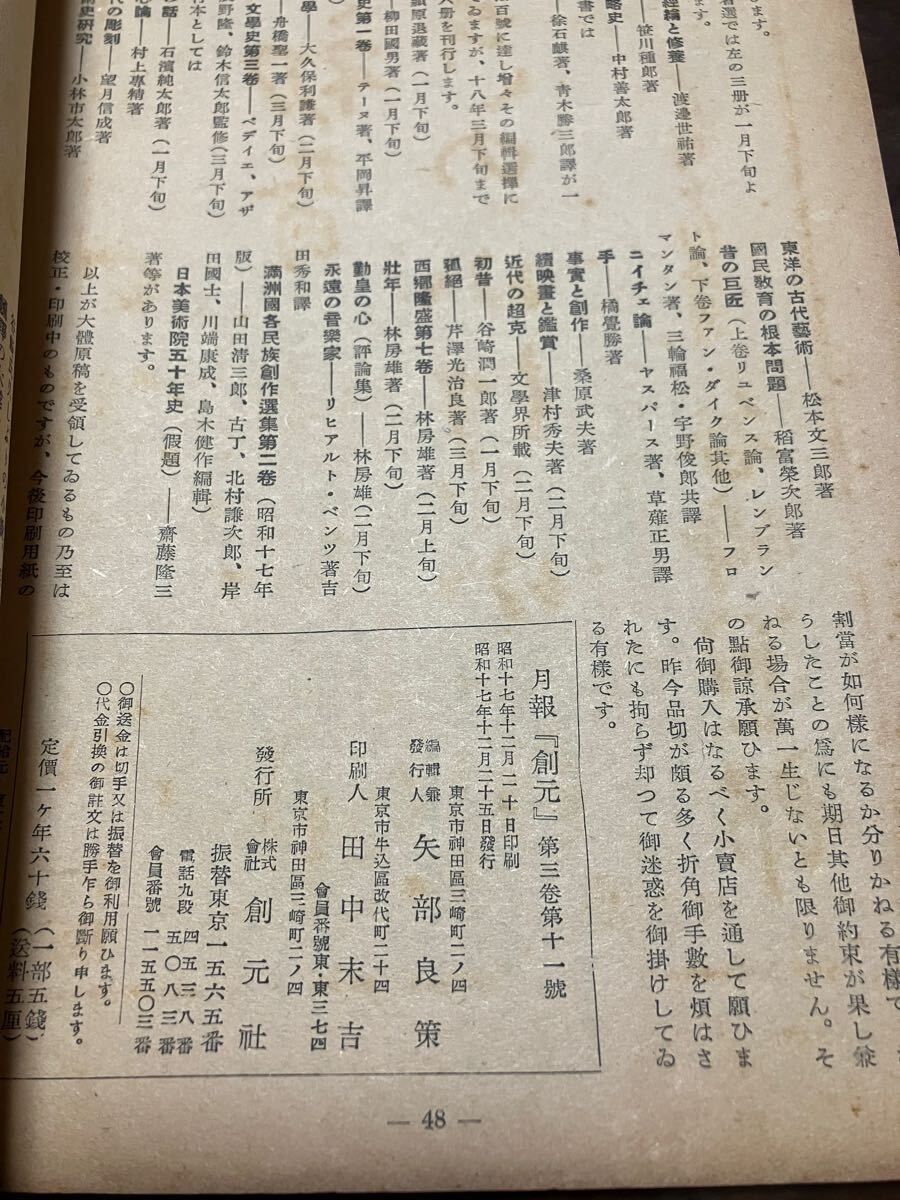 ます。
書選では左の三册が一月下旬よ
ます。
經綸と修養――渡邊世祐著
笹川種郎著
略史――中村善太郎著
書では
徐石麒著、青木勝三郎譯が一
百號に達し增々その編輯選擇に
ゐますが、十八年三月下旬まで
八册を刊行します。
原退藏著(一月下旬)
柳田國男著(一月下旬)
史第一卷――テーヌ著、平岡昇譯
學――大久保利謙著(二月下旬)
舟橋聖一著(三月下旬)
文學史第三卷――ベデイエ、アザ
野隆、鈴木信太郎監修(三月下旬)
本としては
の話――石濱純太郎著(一月下旬)
心論――村上專精著
代の彫刻――望月信成著
術史硏究――小林市太郎著
東洋の古代藝術――松本文三郎著
國民敎育の根本問題――稻富榮次郎著
昔の巨匠(上卷リュベンス論、レンブラン
ト論、下卷ファン・ダイク論其他)――フロ
マンタン著、三輪福松・宇野俊郎共譯
ニイチェ論――ヤスパース著、草薙正男譯
手――橘覺勝著
事實と創作――桑原武夫著
續映畫と鑑賞――津村秀夫著(二月下旬)
近代の超克――文學界所載(二月下旬)
初昔――谷崎潤一郎著(一月下旬)
孤絕――芹澤光治良著(三月下旬)
西鄕隆盛第七卷――林房雄著(二月上旬)
壯年――林房雄著(二月下旬)
勤皇の心(評論集)――林房雄(二月下旬)
永遠の音樂家――リヒアルト・ベンツ著吉
田秀和譯
滿洲國各民族創作選集第二卷(昭和十七年
版)――山田淸三郎、古丁、北村謙次郎、岸
田國士、川端康成、島木健作編輯)
日本美術院五十年史(假題)――齋藤隆三
著等があります。
以上が大體原稿を受領してゐるもの乃至は
校正・印刷中のものですが、今後印刷用紙の
割當が如何樣になるか分りかねる有樣で
うしたことの爲にも期日其他御約束が果し兼
ねる場合が萬一生じないとも限りません。そ
の點御諒承願ひます。
尙御購入はなるべく小賣店を通して願ひま
す。昨今品切が頗る多く折角御手數を煩はさ
れたにも拘らず却つて御迷惑を御掛けしてゐ
る有樣です。
月報『創元』第三卷第十一號
昭和十七年十二月二十日印刷
昭和十七年十二月二十五日發行
東京市神田區三崎町二ノ四
編輯兼發行人 矢部良策
東京市牛込區改代町二十四
印刷人 田中末吉
會員番號東・東三七四
東京市神田區三崎町二ノ四
發行所 株式會社 創元社
振替東京一五六五番
電話九段 四五三八番 五〇八三番
會員番號 一一五五〇三番
〇御送金は切手又は振替を御利用願ひます。
〇代金引換の御註文は勝手乍ら御斷り申します。
定價一ケ年六十錢(一部五錢)(送料五厘)
配給元
― 48 ―